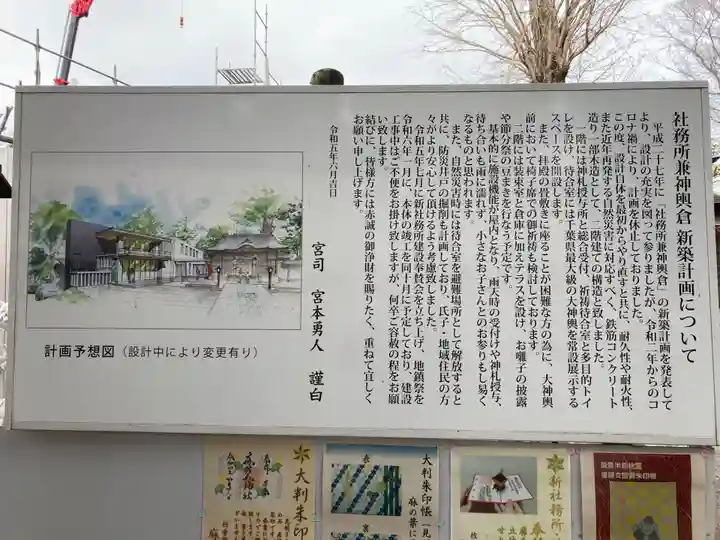 社務所兼神輿倉 新築計画について
平成二十七年に「社務所兼神輿倉」の新築計画を発表して
より、設計の充実を図って参りましたが、令和二年からのコ
ロナ禍により、計画を休止しておりました。
この度、設計自体を最初からやり直すと共に、耐久性や耐火性、
また近年再発する自然災害に対応すべく、鉄筋コンクリート
造り一部木造として、二階建ての構造と致しました。
一階には神札授与所と総合受付、祈祷待合室と多目的トイ
レを設け、待合室には千葉県最大級の大神輿を常設展示する
スペースを開設します。
また、拝殿の板敷きに座ることが困難な方の為に、大神輿
前において椅子席での御祈祷も検討しております。
二階には装束室と倉庫に加えテラスを設け、お囃子の披露
や節分祭の豆まきを行なう予定です。
基本的に施設機能が屋内となり、雨天時の受付けや神札授与、
待ち合いも雨に濡れず、小さなお子さんとのお参りもし易く
なるものと思われます。
また、自然災害時には待合室を避難場所として解放すると
共に、防災井戸の掘削も計画しており、氏子・地域住民の方
々がより安心して頂けるよう考慮致しました。
令和五年七月に新社務所建設奉賛会を立ち上げ、地鎮祭を
令和六年一月に、本体の竣工を同十月に予定しており、建設
工事中はご不便をお掛け致しますが、何卒ご容赦の程をお願
い致します。
結びに、皆様方には赤誠の御浄財を賜りたく、重ねて宜しく
お願い申し上げます。
令和五年六月吉日
宮司 宮本勇人 謹白
計画予想図（設計中により変更有り）
大判朱印
大判朱印帳
麻の葉に
表
裏
新社務所・